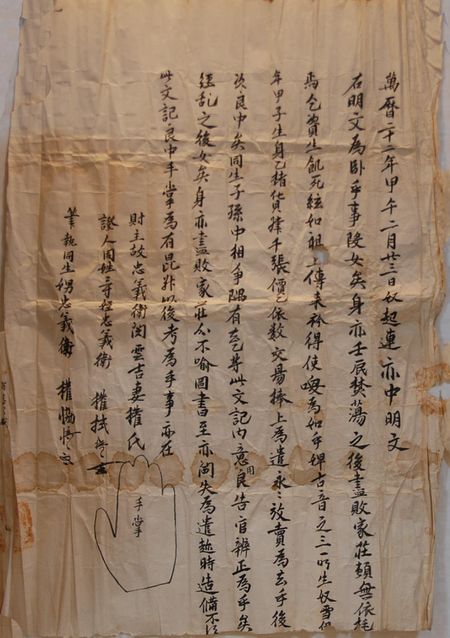 萬曆二十二年甲午二月廿三日奴起連亦中明文
右明文爲臥乎事段女矣身亦壬辰焚蕩之後盡敗家莊賴無依托
爲乞資生飢死絃如祖上傳來衿得使喚爲如乎婢古音之三所生奴雪
年甲子生身乙楮貨肆千張價乙依數交易捧上爲遣永永放賣爲去乎後
次良中矣同生子孫中相爭隅有去乙等此文記內意用良告官辨正爲乎矣
經亂之後女矣身亦盡敗家莊叱不喻圖書至亦閪失爲遣趂時造備不
此文記良中手掌爲有昆幷以後考爲乎事亦在
財主故忠義衛閔雲吉妻權氏
手掌
證人同姓 忠義衛 權
筆執同生娚忠義衛 權